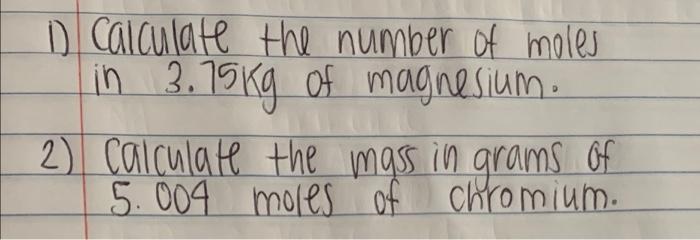 1) Calculate the number of moles
in 3.75Kg of magnesium.
2) Calculate the mass in grams of
5.004 moles of chromium.